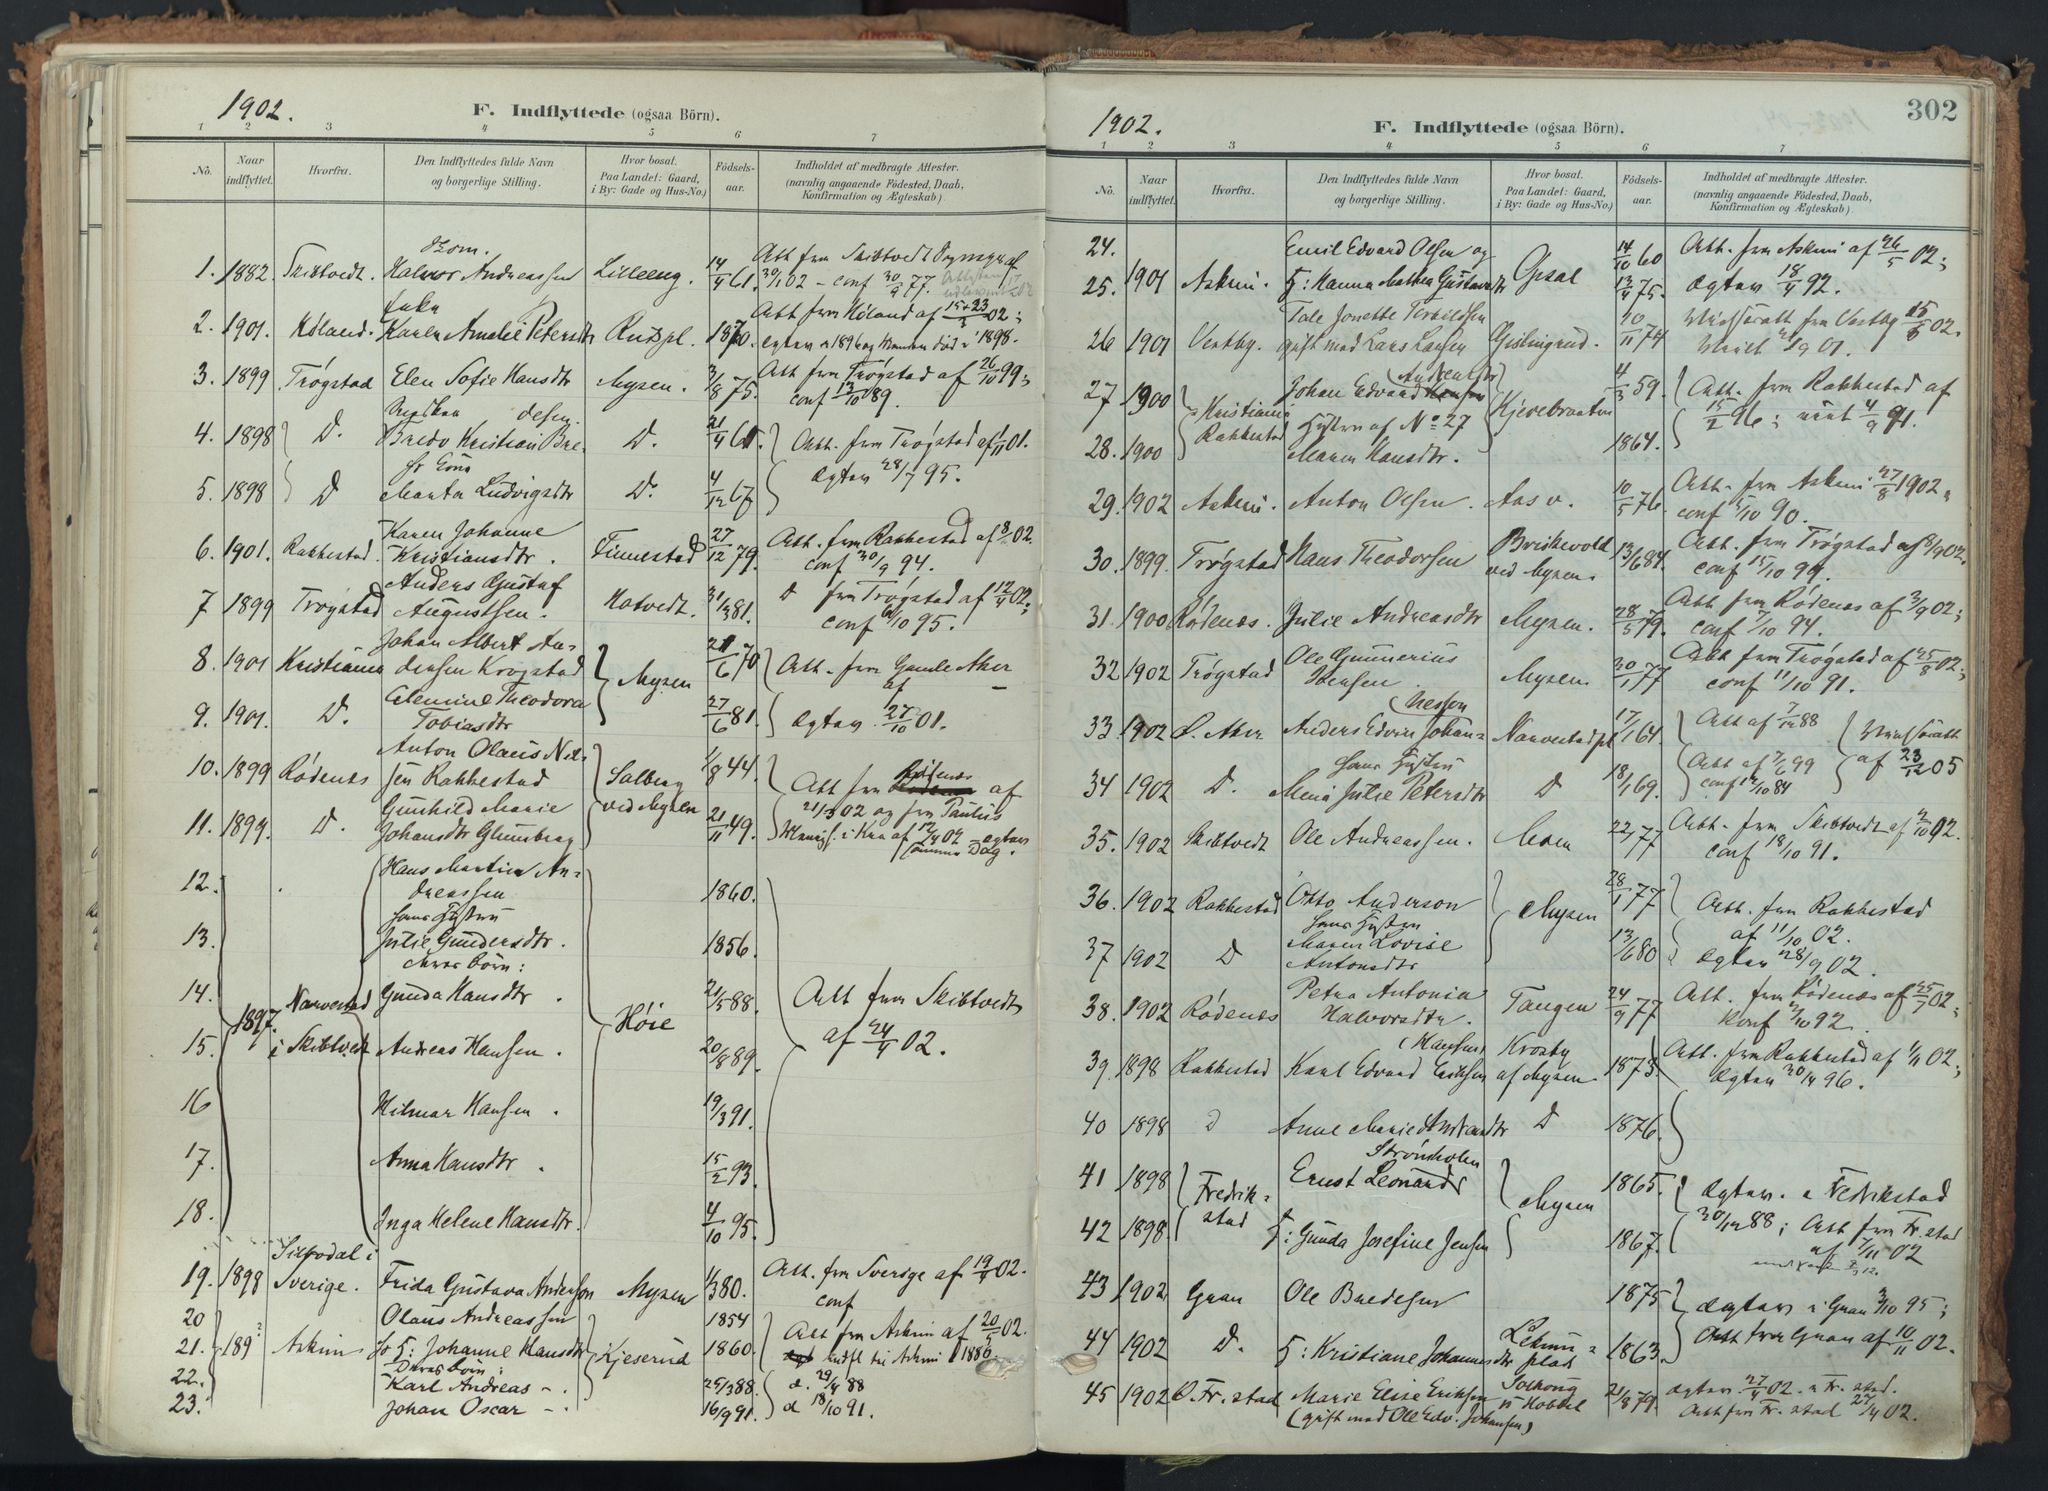 1902.
F. Indflyttede (ogsaa Börn).
1 2 3 4 5 6 7
No.
Naar indflyttet.
Hvorfra.
Den Indflyttedes fulde Navn og borgerlige Stilling.
Hvor bosat. Paa Landet: Gaard, i By: Gade og Hus-No.)
Födsels-aar.
Indholdet af medbragte Attester. (navnlig angaaende Födested, Daab, Konfirmation og Ægteskab)
1. 1882 Skibtvedt. Halvor Andreassen Lilleeng. 14/4 61. Att fra Skibtvedt af 30/1 02 – conf 30/9 77.
2. 1901. Høland. Enke Karen Amelie Petersdtr 1870. Att fra Høland af 15+23/3 02;
3. 1899 Trøgstad Elen Sofie Hansdtr Mysen. 3/8 75. Att fra Trøgstad af 26/10 99; conf 13/10 89.
4. 1898 D. Bredo Kristian Bredesen D. 21/4 61 Att. fra Trøgstad af 1/11 01.
5. 1898 D Marta Ludvigsdtr D. 4/12 67 Ægtev 28/7 95.
6. 1901. Rakkestad. Karen Johanne Kristiansdtr. Finnestad 27/12 79. Att. fra Rakkestad af 8/2 02. conf 30/9 94.
7 1899 Trøgstad Anders Gustaf Augustsen. Hotvedt. 31/3 81. D fra Trøgstad af 12/4 02; conf 6/10 95.
8. 1901 Kristiania Johan Albert Andersen Krogstad Mysen 21/6 70 Att. fra Gamle Aker af –
9. 1901. D. Clemine Theodora Tobiasdtr 27/6 81. Ægtev. 27/10 01.
10. 1899 Rødenes Anton Olaus Nilsen Rakkestad Solberg ved Mysen 1/8 44. Att fra Rødenes af 21/3 02 og fra Paulus
11. 1899. D. Gunhild Marie Johansdtr Glomberg 21/11 49. Menigh. i Kra af 12/4 02 – Ægtev samme Dag.
12. Hans Martin Andreassen 1860.
13. hans Hustru Julie Gundersdtr. 1856.
deres børn:
14. 1897. Narvestad i Skibtvedt Gunda Hansdtr. Høie 21/5 88. Att fra Skibtvedt af 24/4 02.
15. Andreas Hansen. 20/8 89.
16 Hilmar Hansen. 19/3 91.
17. Anna Hansdtr. 15/2 93.
18. Inga Helene Hansdtr. 4/10 95.
19. 1898 Silbodal i Sverige. Frida Gustava Anderson Mysen 1/3 80. Att. fra Sverige af 19/4 02. conf
20 Olaus Andreassen 1854
21. 189? Askim H: Johanne Hansdtr Kjeserud 1860. Att fra Askim af 20/5 02. Indfl til Askim 1886.
Deres børn:
22. Karl Andreas –. 25/3 88. d. 29/4 88
23. Johan Oscar –. 16/9 91. d 18/10 91.
302
1902.
F. Indflyttede (ogsaa Börn).
1 2 3 4 5 6 7
No.
Naar indflyttet.
Hvorfra.
Den Indflyttedes fulde Navn og borgerlige Stilling.
Hvor bosat. Paa Landet: Gaard, i By: Gade og Hus-No.)
Födsels-aar.
Indholdet af medbragte Attester. (navnlig angaaende Födested, Daab, Konfirmation og Ægteskab)
24. Emil Edvard Olsen og 14/10 60 Att. fra Askim af 26/5 02;
25. 1901 Askim. H: Hanna Mathea Gustavsdtr Opsal 13/4 75. Ægtev 18/4 92.
26 1901 Vestby. Tale Jonette Terkildsen gift med Lars Larsen Gislingrud. 10/11 74 fra Vestby 15/6 02.
27 1900 Kristiania Rakkestad Johan Edvard Andreassen Kjevebraaten 4/3 59. Att. fra Rakkestad af 15/2 96; viet 4/9 91.
28. 1900 Hustru af No 27 Maren Hansdtr. 1864.
29. 1902 Askim. Anton Olsen. Aas v. 10/5 76. Att. fra Askim 27/8 1902. conf 5/10 90.
30. 1899. Trøgstad Hans Theodorsen Briskevold ved Mysen. 13/6 84. Att. fra Trøgstad af 8/9 02. conf 15/10 99.
31. 1900 Rødenes. Julie Andreasdtr Mysen. 28/5 79. Att fra Rødenes af 3/9 02; conf 7/10 94.
32 1902 Trøgstad Ole Gunnerius Ibensen. Mysen. 30/1 77 Att fra Trøgstad af 25/8 02; conf 11/10 91.
33 1902 V. Aker Anders Edvin Johannessen Narvestadpl 17/1 64. Att af 7/12 88
34 1902 D. hans Hustru Mina Julie Petersdtr D 18/1 69. Att af 7/6 99 conf 12/10 84 af 23/12 05
35. 1902 Skibtvedt Ole Andreassen. Moen 22/1 77 Att. fra Skibtvedt af 2/10 02. conf 18/10 91.
36. 1902 Rakkestad Otto Anderson Mysen 28/1 77 Att. fra Rakkestad af 11/10 02.
37 1902 D hans Hustru Maren Lovise Antonsdtr 13/6 80 Ægtev 28/9 02.
38. 1902 Rødenes Petra Antonia Halvorsdtr. Tangen 24/9 77 Att. fra Rødenes af 25/7 02; Konf 2/10 92.
39. 1898 Rakkestad Karl Edvard Eriksen (Hansen) Krosby af Mysen 1873. Att. fra Rakkestad af 1/11 02; Ægtev 30/4 96.
40 1898 D Anne Marie D 1876.
41 1898 Fredrikstad Ernst Leonard Strömholm Mysen 1865. Ægtev. i Fredrikstad 30/12 88; Att fra Fr.stad af 7/11 02
42 1898. H: Gunda Josefine Jensen 1867.
43 1902 Gran Ole Bredesen 1875 Ægtev i Gran 3/10 95;
44 1902 D. H: Kristiane Johannesdtr Lekum plads 1863. Att fra Gran af 10/11 02.
45 1902 Ø. Fr. stad Marie Elise Eriksen i Hobøl 21/8 79. Ægtev. 27/4 02. i Fr. stad.
(gift med Ole Edv. Johansen) Att fra Fr. stad 27/4 02.